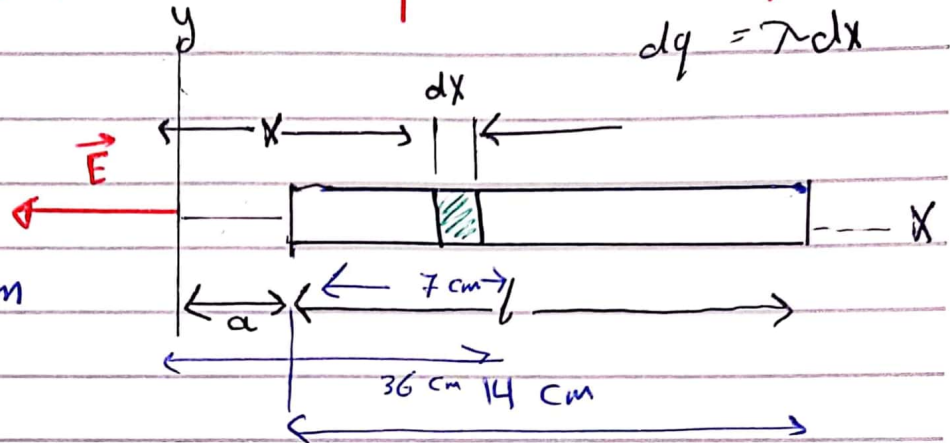 y
dq = λdx
dx
x
E
X
7 cm
l
m
a
36 cm
14 cm